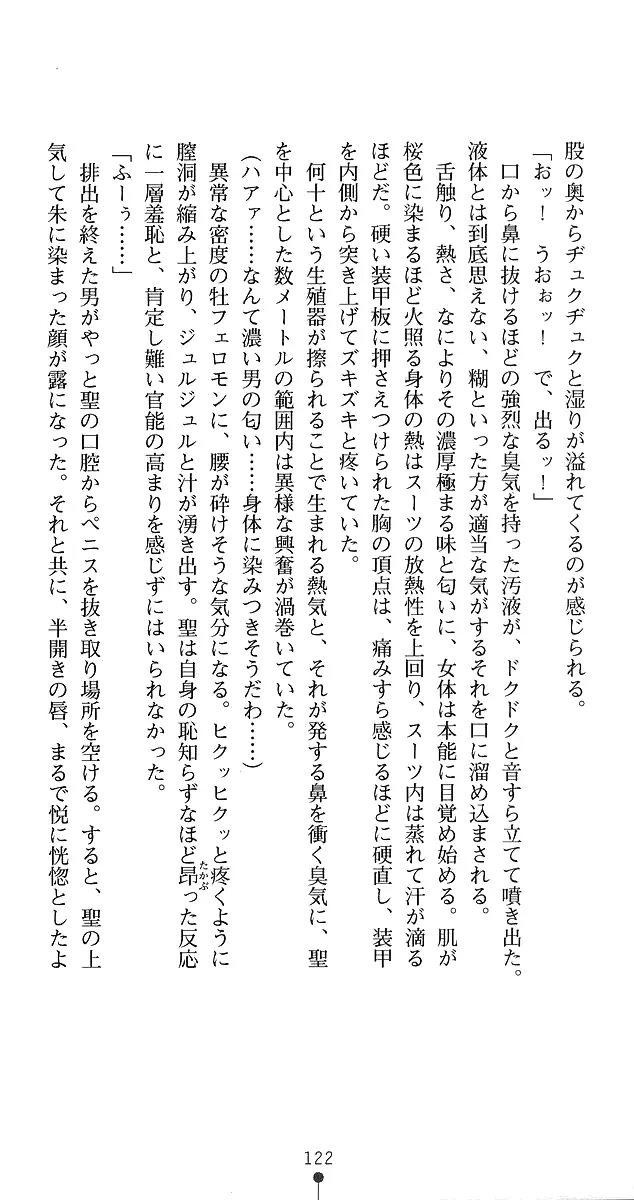 股の奥からヂュクヂュクと湿りが溢れてくるのが感じられる。
「おッ！　うおぉッ！　で、出るッ！」
口から鼻に抜けるほどの強烈な臭気を持った汚液が、ドクドクと音すら立てて噴き出た。
液体とは到底思えない、糊といった方が適当な気がするそれを口に溜め込まされる。
舌触り、熱さ、なによりその濃厚極まる味と匂いに、女体は本能に目覚め始める。肌が
桜色に染まるほど火照る身体の熱はスーツの放熱性を上回り、スーツ内は蒸れて汗が滴る
ほどだ。硬い装甲板に押さえつけられた胸の頂点は、痛みすら感じるほどに硬直し、装甲
を内側から突き上げてズキズキと疼いていた。
何十という生殖器が擦られることで生まれる熱気と、それが発する鼻を衝く臭気に、聖
を中心とした数メートルの範囲内は異様な興奮が渦巻いていた。
（ハアァ……なんて濃い男の匂い……身体に染みつきそうだわ……）
異常な密度の牡フェロモンに、腰が砕けそうな気分になる。ヒクッヒクッと疼くように
膣洞が縮み上がり、ジュルジュルと汁が湧き出す。聖は自身の恥知らずなほど昂った反応
たかぶ
に一層羞恥と、肯定し難い官能の高まりを感じずにはいられなかった。
「ふーぅ……」
排出を終えた男がやっと聖の口腔からペニスを抜き取り場所を空ける。すると、聖の上
気して朱に染まった顔が露になった。それと共に、半開きの唇、まるで悦に恍惚としたよ
122